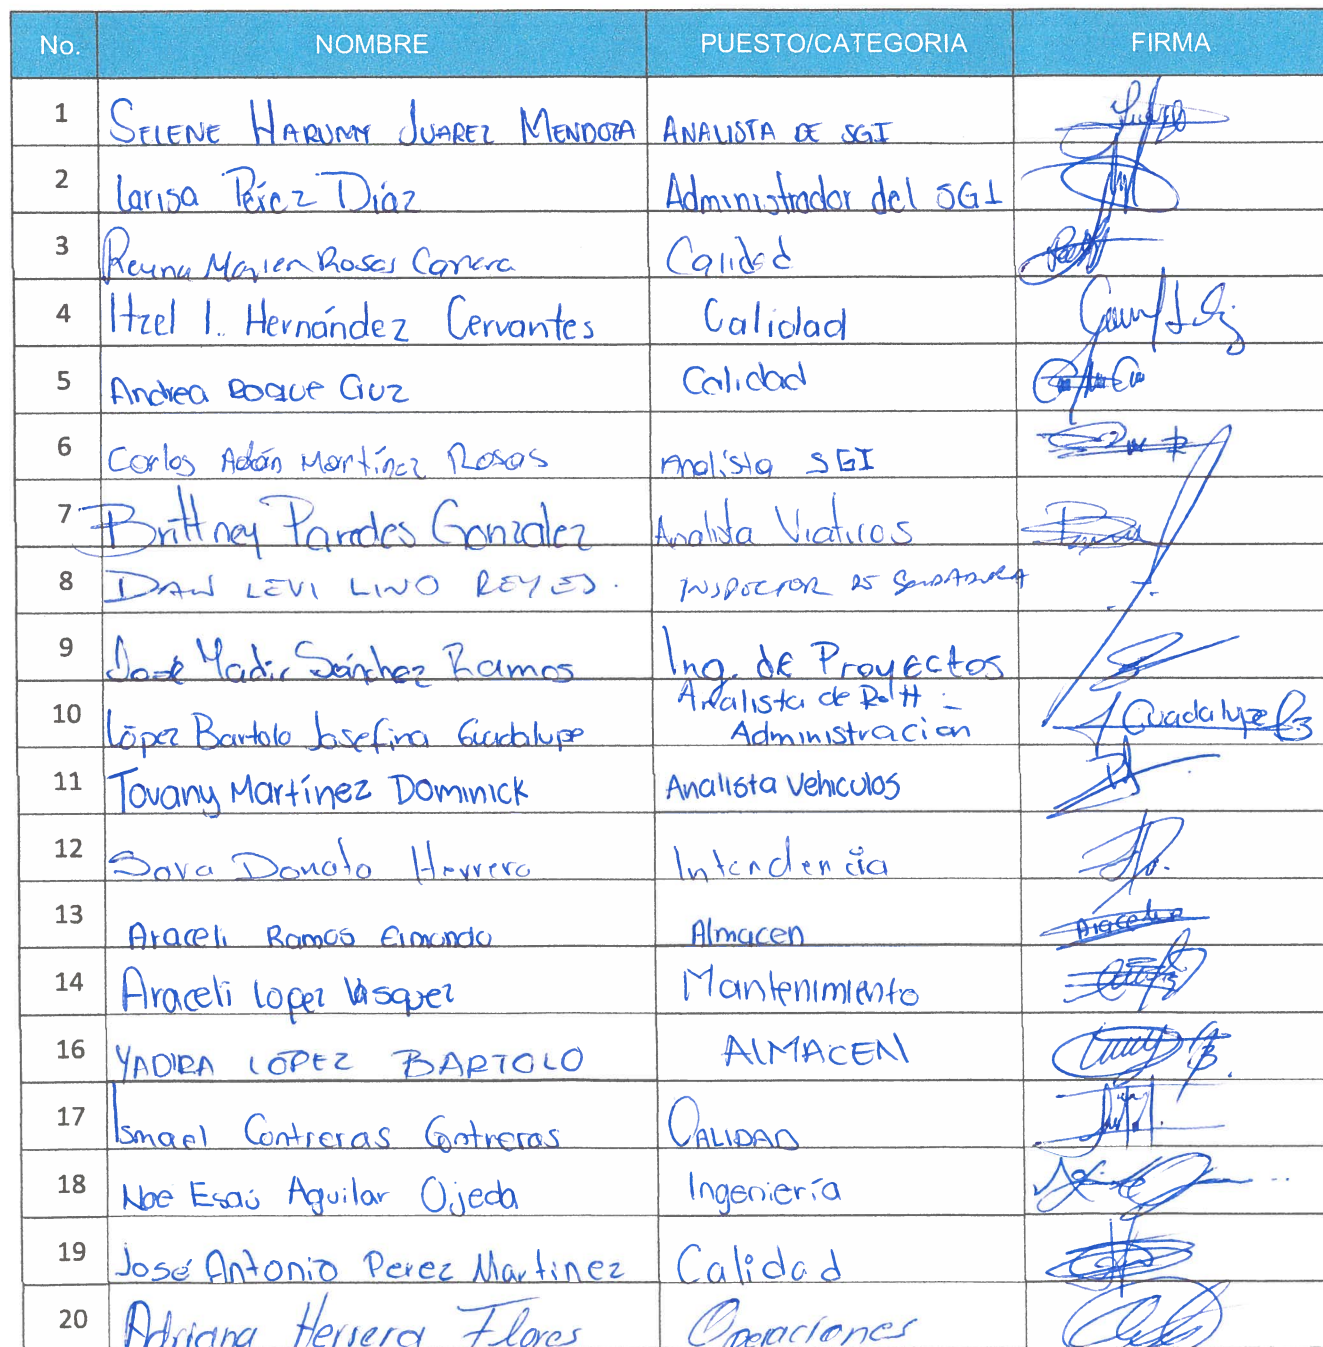 No. NOMBRE PUESTO/CATEGORIA FIRMA
1 SELENE HARUMY JUAREZ MENDOZA ANALISTA DE SGI
2 Larisa Pérez Díaz Administrador del SGI
3 Reyna Marien Rosas Carrera Calidad
4 Itzel I. Hernández Cervantes Calidad
5 Andrea Roque Cruz Calidad
6 Carlos Adán Martínez Rosas Analista SGI
7 Brittney Paredes Gonzalez Analista Viaticos
8 DAN LEVI LINO REYES. INSPECTOR DE SOLDADURA
9 José Yadir Sánchez Ramos Ing. de Proyectos
10 López Bartolo Josefina Guadalupe Analista de R.H -
Administracion Guadalupe
11 Tovany Martínez Dominick Analista Vehiculos
12 Sara Donato Herrera Intendencia
13 Araceli Ramos Almacen Araceli
14 Araceli lopez Vasquez Mantenimiento
16 YADIRA LÓPEZ BARTOLO AlMACEN
17 Ismael Contreras Contreras CALIDAD
18 Noe Esaú Aguilar Ojeda Ingeniería
19 José Antonio Perez Martinez Calidad
20 Adriana Herrera Flores Operaciones